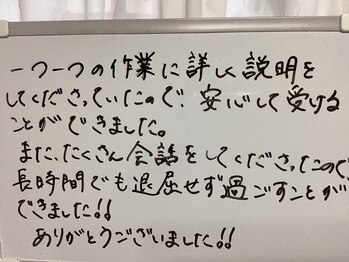 一つ一つの作業に詳しく説明を
してくださっていたので、安心して受ける
ことができました。
また、たくさん会話をしてくださったので
長時間でも退屈せず過ごすことが
できました!!
ありがとうございました!!